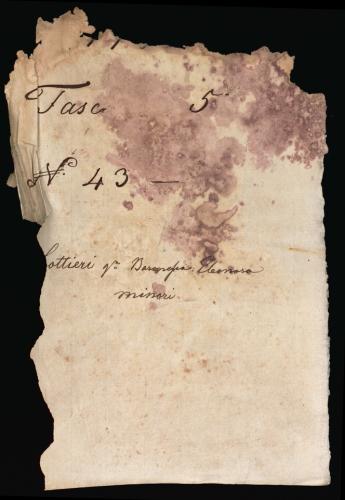 Tasc 5
N.º 43 —
ottieri q.m Baronessa Eleonora
minori